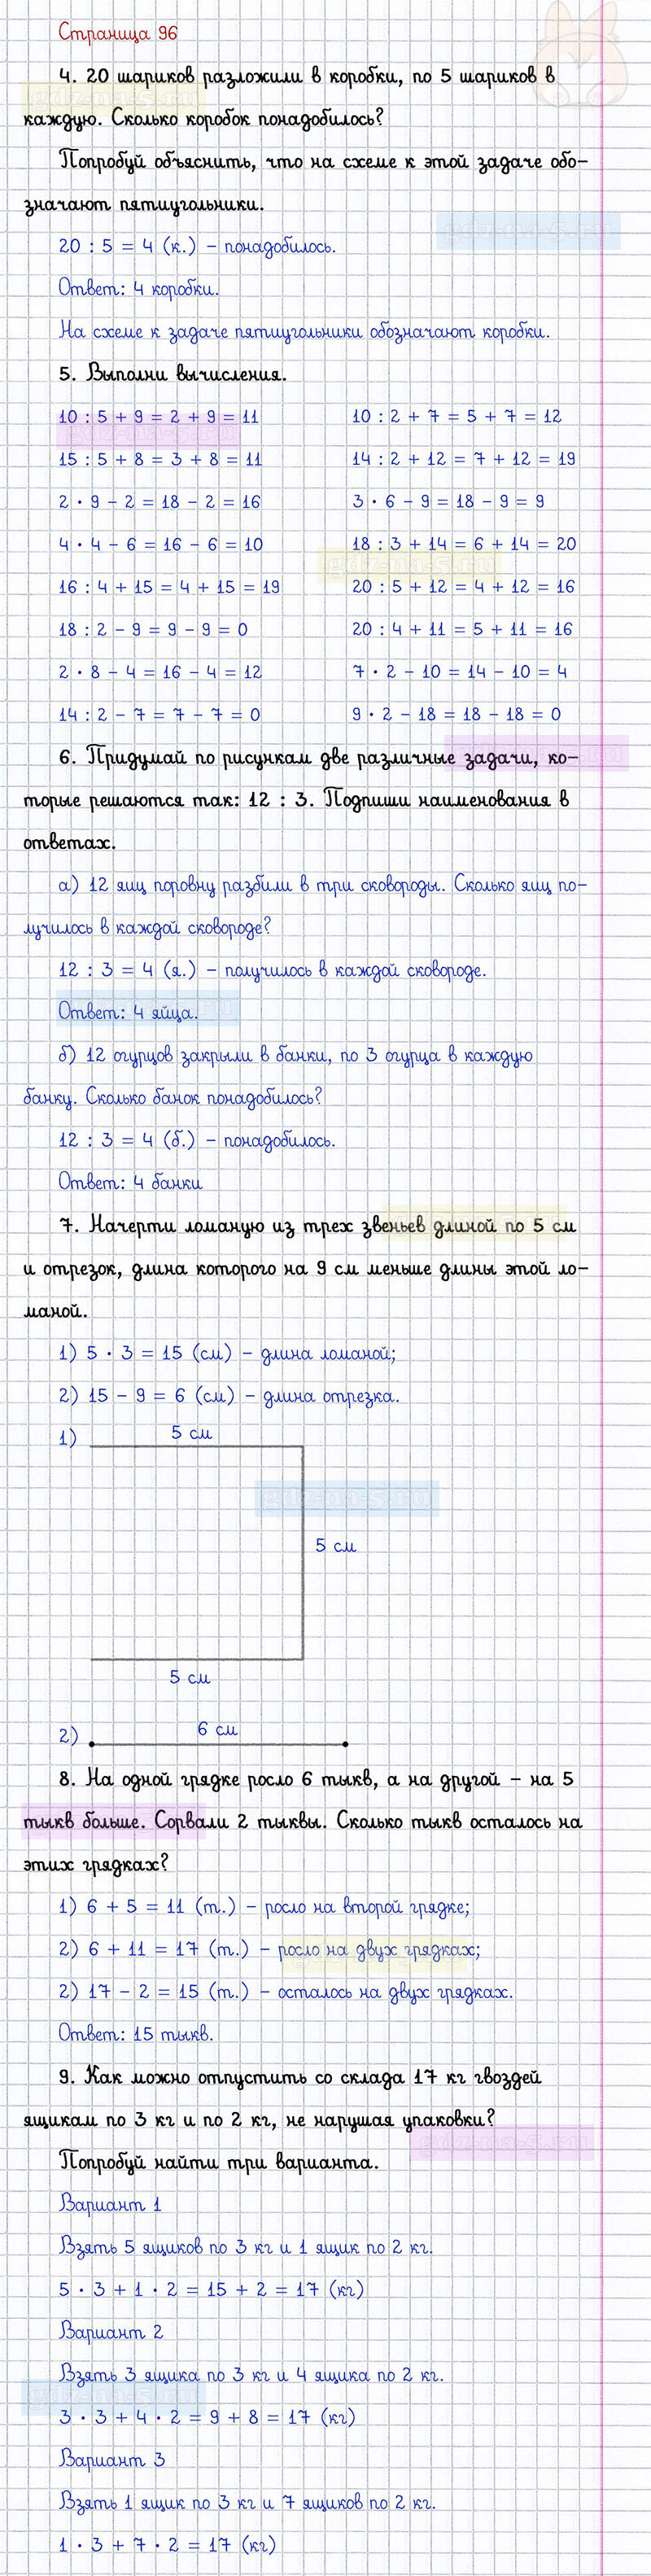 Страница 96
4. 20 шариков разложили в коробки, по 5 шариков в
каждую. Сколько коробок понадобилось?
Попробуй объяснить, что на схеме к этой задаче обо-
значают пятиугольники.
20 : 5 = 4 (к.) – понадобилось.
Ответ: 4 коробки.
На схеме к задаче пятиугольники обозначают коробки.
5. Выполни вычисления.
10 : 5 + 9 = 2 + 9 = 11 10 : 2 + 7 = 5 + 7 = 12
15 : 5 + 8 = 3 + 8 = 11 14 : 2 + 12 = 7 + 12 = 19
2 · 9 – 2 = 18 – 2 = 16 3 · 6 – 9 = 18 – 9 = 9
4 · 4 – 6 = 16 – 6 = 10 18 : 3 + 14 = 6 + 14 = 20
16 : 4 + 15 = 4 + 15 = 19 20 : 5 + 12 = 4 + 12 = 16
18 : 2 – 9 = 9 – 9 = 0 20 : 4 + 11 = 5 + 11 = 16
2 · 8 – 4 = 16 – 4 = 12 7 · 2 – 10 = 14 – 10 = 4
14 : 2 – 7 = 7 – 7 = 0 9 · 2 – 18 = 18 – 18 = 0
6. Придумай по рисункам две различные задачи, ко-
торые решаются так: 12 : 3. Подпиши наименования в
ответах.
а) 12 яиц поровну разбили в три сковороды. Сколько яиц по-
лучилось в каждой сковороде?
12 : 3 = 4 (я.) – получилось в каждой сковороде.
Ответ: 4 яйца.
б) 12 огурцов закрыли в банки, по 3 огурца в каждую
банку. Сколько банок понадобилось?
12 : 3 = 4 (б.) – понадобилось.
Ответ: 4 банки
7. Начерти ломаную из трех звеньев длиной по 5 см
и отрезок, длина которого на 9 см меньше длины этой ло-
маной.
1) 5 · 3 = 15 (см) – длина ломаной;
2) 15 – 9 = 6 (см) – длина отрезка.
1) 5 см
5 см
5 см
2) 6 см
8. На одной грядке росло 6 тыкв, а на другой – на 5
тыкв больше. Сорвали 2 тыквы. Сколько тыкв осталось на
этих грядках?
1) 6 + 5 = 11 (т.) – росло на второй грядке;
2) 6 + 11 = 17 (т.) – росло на двух грядках;
2) 17 – 2 = 15 (т.) – осталось на двух грядках.
Ответ: 15 тыкв.
9. Как можно отпустить со склада 17 кг гвоздей
ящикам по 3 кг и по 2 кг, не нарушая упаковки?
Попробуй найти три варианта.
Вариант 1
Взять 5 ящиков по 3 кг и 1 ящик по 2 кг.
5 · 3 + 1 · 2 = 15 + 2 = 17 (кг)
Вариант 2
Взять 3 ящика по 3 кг и 4 ящика по 2 кг.
3 · 3 + 4 · 2 = 9 + 8 = 17 (кг)
Вариант 3
Взять 1 ящик по 3 кг и 7 ящиков по 2 кг.
1 · 3 + 7 · 2 = 17 (кг)